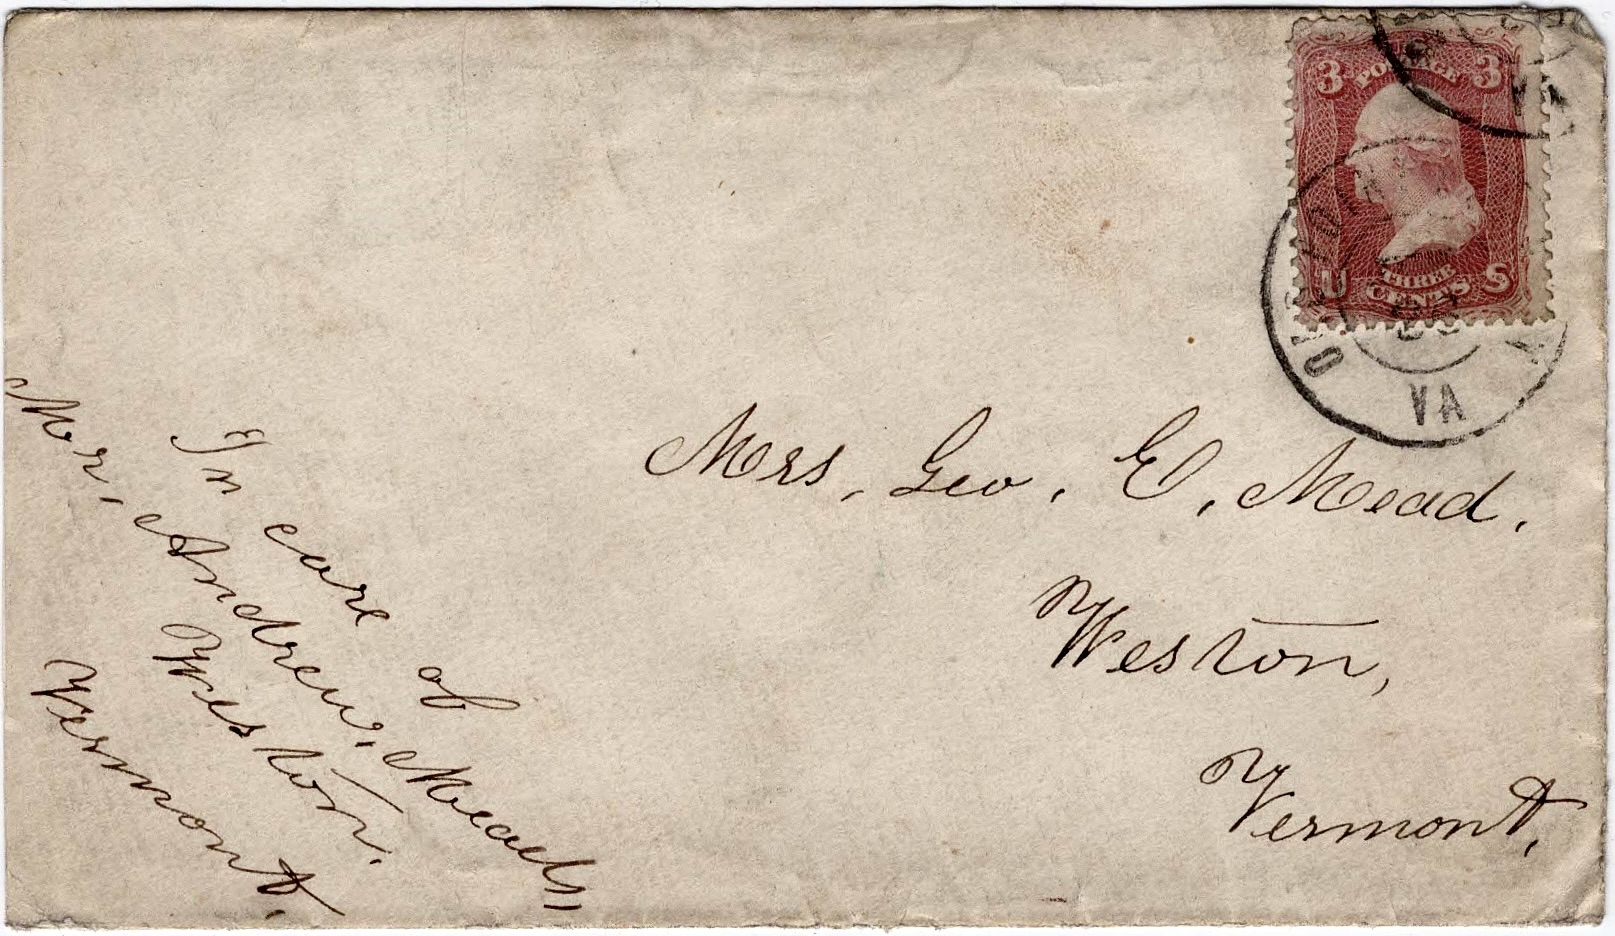 3 POSTAGE 3
U THREE S
CENTS
VA
VA
Mrs. Geo. E. Mead.
Weston,
Vermont.
In care of
Mr. Andrew, Meads,
Weston.
Vermont.